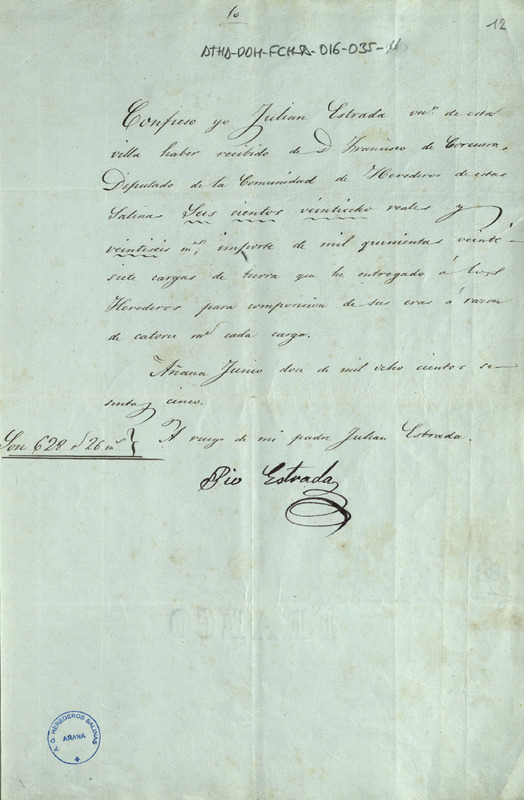 10
12
ATHA-DOH-FCHSA-016-035-11
Confieso yo Julian Estrada vno. de esta
villa haber recibido de D Francisco de Corcuera,
Diputado de la Comunidad de Herederos de estas
Salinas Seis cientos veintiocho reales y
veintiseis ms. importe de mil quinientas veinte
siete cargas de tierra que he entregado á los
Herederos para composicion de sus eras á razon
de catorce ms cada carga.
Añana Junio doce de mil ocho cientos se-
senta y cinco.
Son 628 rs 26 ms
A ruego de mi padre Julian Estrada.
Pio Estrada
HEREDEROS SALINAS
AÑANA